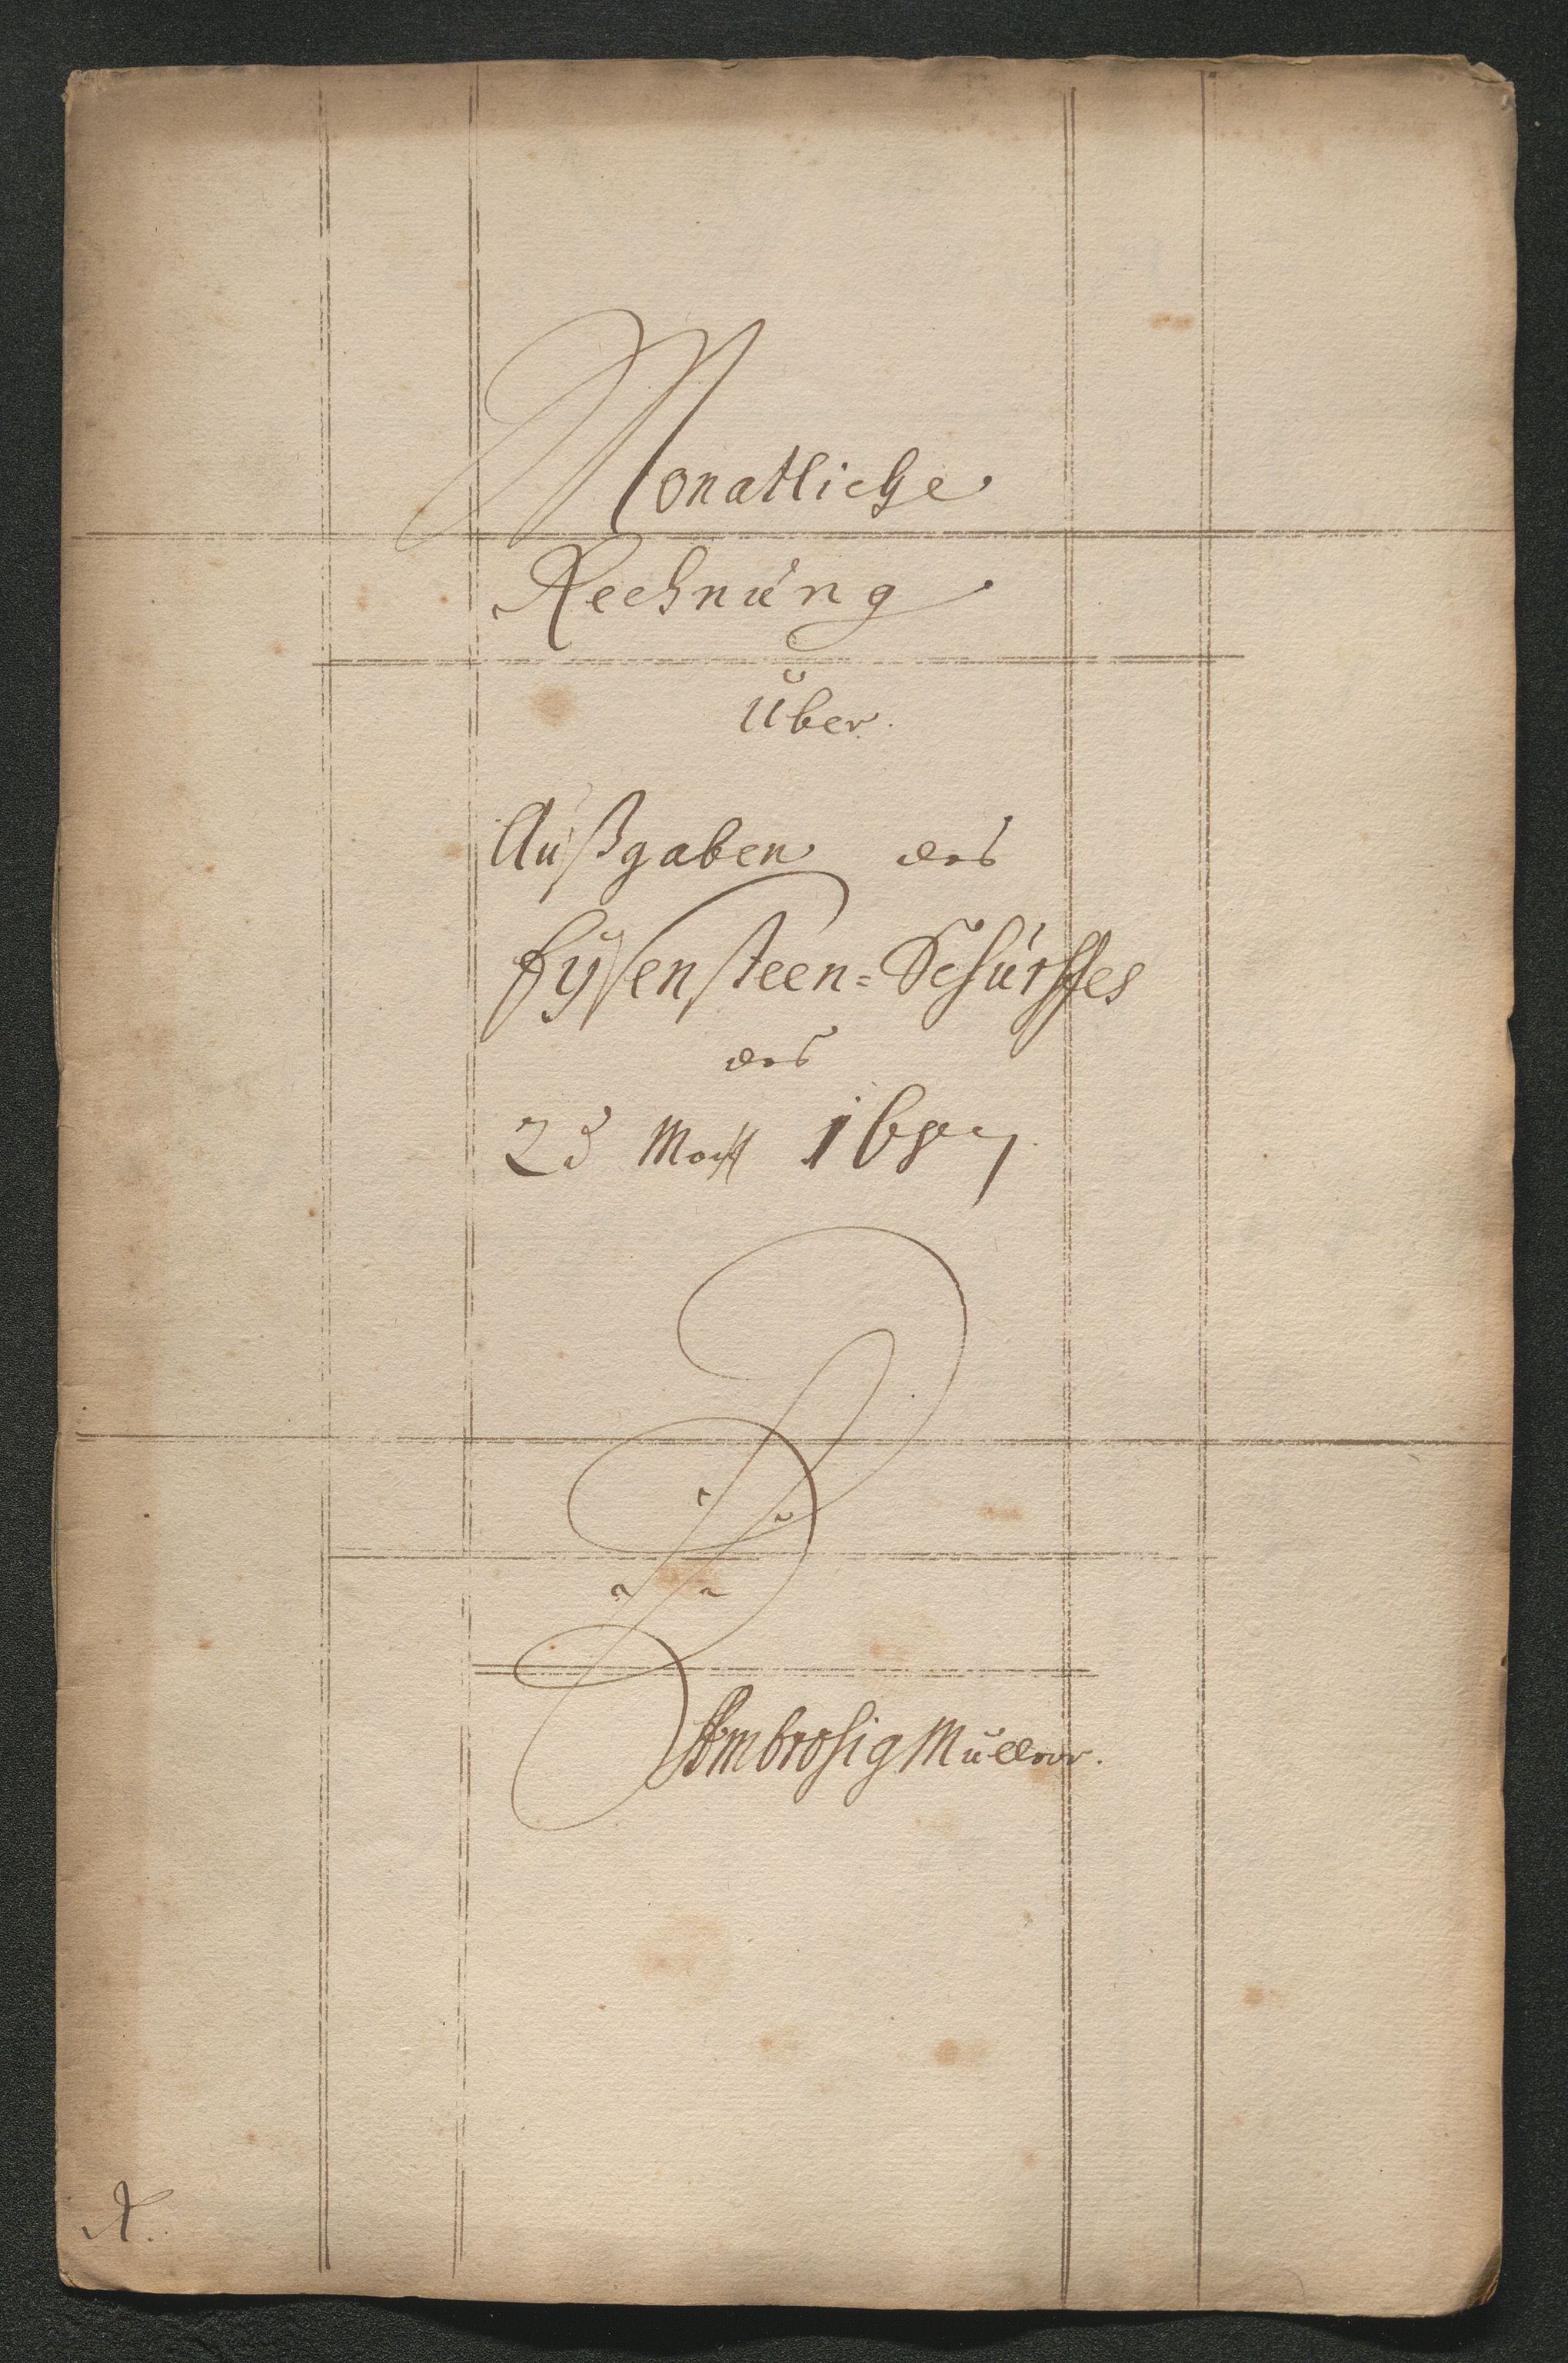 Monatliche
Rechnung
über.
Außgaben des
Eÿsensteen=Schurffes
des
23 Mart 1687
Ambrosig Müller.
R.